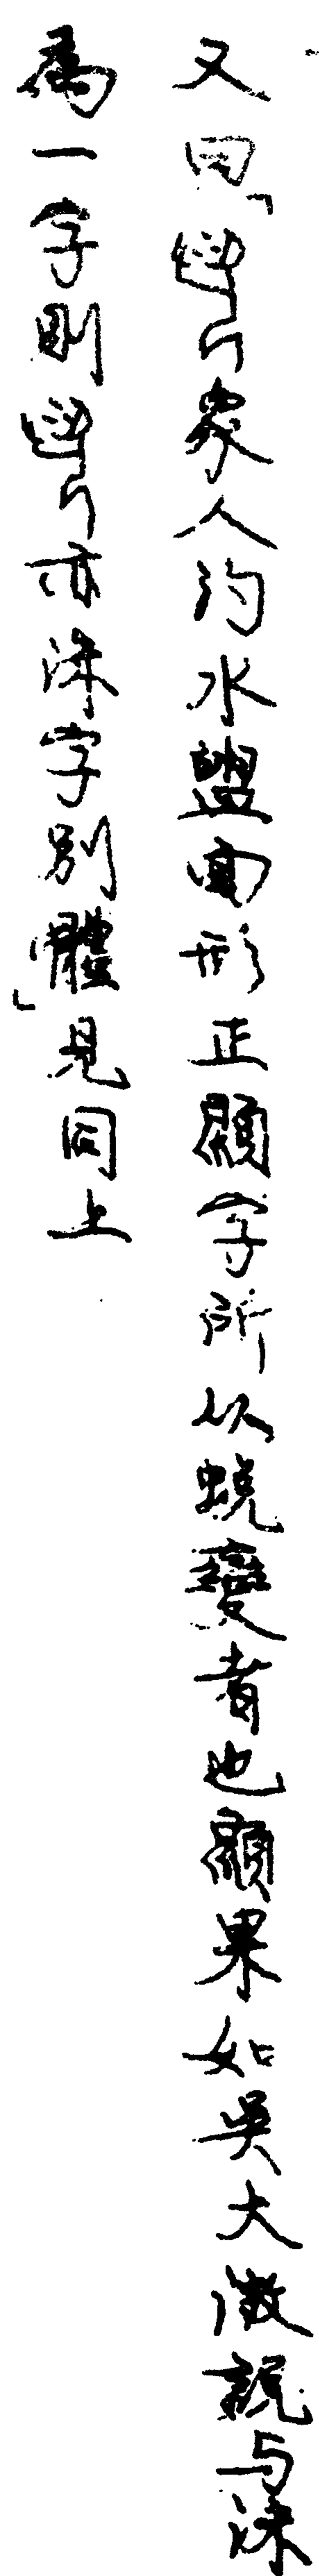 又曰「象人沟水盥面形正顯字所以蛻變者也顯果如吳大澂說与沬
為一字則亦沬字別體」見同上